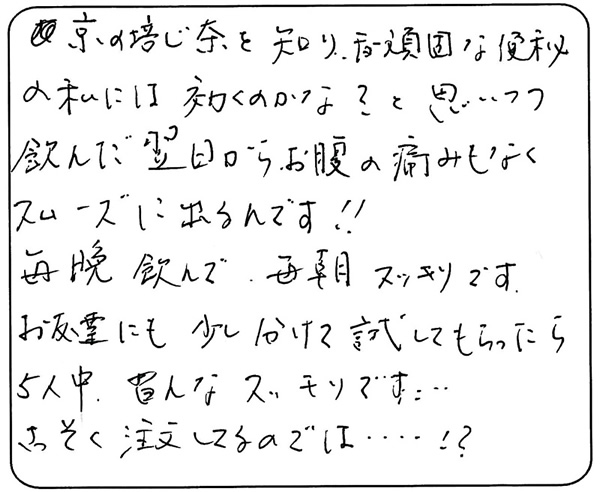 京の培じ茶を知り、頑固な便秘
の私には効くのかな?と思いつつ
飲んだ翌日からお腹の痛みもなく
スムーズに出るんです!!
毎晩飲んで、毎朝スッキリです。
お友達にも少し分けて試してもらったら
5人中、皆んなスッキリです…
さっそく注文してるのでは‥‥!?